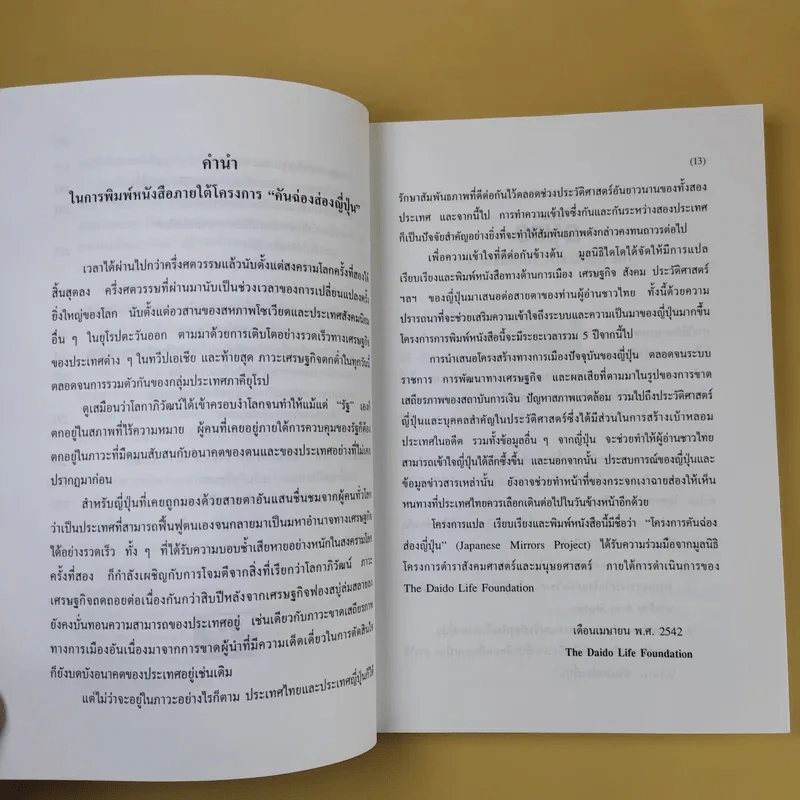 คำนำ
ในการพิมพ์หนังสือภายใต้โครงการ "คันฉ่องส่องญี่ปุ่น"
เวลาได้ผ่านไปกว่าครึ่งศตวรรษแล้วนับตั้งแต่สงครามโลกครั้งที่สองได้
สิ้นสุดลง ครึ่งศตวรรษที่ผ่านมานับเป็นช่วงเวลาของการเปลี่ยนแปลงครั้ง
ยิ่งใหญ่ของโลก นับตั้งแต่อวสานของสหภาพโซเวียตและประเทศสังคมนิยม
อื่น ๆ ในยุโรปตะวันออก ตามมาด้วยการเติบโตอย่างรวดเร็วทางเศรษฐกิจ
ของประเทศต่าง ๆ ในทวีปเอเชีย และท้ายสุด ภาวะเศรษฐกิจตกต่ำในทุกวันนี้
ตลอดจนการรวมตัวกันของกลุ่มประเทศภาคียุโรป
ดูเสมือนว่าโลกาภิวัฒน์ได้เข้าครอบงำโลกจนทำให้แม้แต่ "รัฐ" เอง
ตกอยู่ในสภาพที่ไร้ความหมาย ผู้คนที่เคยอยู่ภายใต้การควบคุมของรัฐก็ต้อง
ตกอยู่ในภาวะที่มืดมนสับสนกับอนาคตของตนและของประเทศอย่างที่ไม่เคย
ปรากฏมาก่อน
สำหรับญี่ปุ่นที่เคยถูกมองด้วยสายตาอันแสนชื่นชมจากผู้คนทั่วโลก
ว่าเป็นประเทศที่สามารถฟื้นฟูตนเองจนกลายมาเป็นมหาอำนาจทางเศรษฐกิจ
ได้อย่างรวดเร็ว ทั้ง ๆ ที่ได้รับความบอบช้ำเสียหายอย่างหนักในสงครามโลก
ครั้งที่สอง ก็กำลังเผชิญกับการโจมตีจากสิ่งที่เรียกว่าโลกาภิวัฒน์ ภาวะ
เศรษฐกิจถดถอยต่อเนื่องกันกว่าสิบปีหลังจากเศรษฐกิจฟองสบู่ล่มสลายลง
ยังคงบั่นทอนความสามารถของประเทศอยู่ เช่นเดียวกับภาวะขาดเสถียรภาพ
ทางการเมืองอันเนื่องมาจากการขาดผู้นำที่มีความเด็ดเดี่ยวในการตัดสินใจ
ก็ยังบดบังอนาคตของประเทศอยู่เช่นเดิม
แต่ไม่ว่าจะอยู่ในภาวะอย่างไรก็ตาม ประเทศไทยและประเทศญี่ปุ่นก็ได้
(13)
รักษาสัมพันธภาพที่ดีต่อกันไว้ตลอดช่วงประวัติศาสตร์อันยาวนานของทั้งสอง
ประเทศ และจากนี้ไป การทำความเข้าใจซึ่งกันและกันระหว่างสองประเทศ
ก็เป็นปัจจัยสำคัญอย่างยิ่งที่จะทำให้สัมพันธภาพดังกล่าวคงทนถาวรต่อไป
เพื่อความเข้าใจที่ดีต่อกันข้างต้น มูลนิธิไดโดได้จัดให้มีการแปล
เรียบเรียงและพิมพ์หนังสือทางด้านการเมือง เศรษฐกิจ สังคม ประวัติศาสตร์
ฯลฯ ของญี่ปุ่นมาเสนอต่อสายตาของท่านผู้อ่านชาวไทย ทั้งนี้ด้วยความ
ปรารถนาที่จะช่วยเสริมความเข้าใจถึงระบบและความเป็นมาของญี่ปุ่นมากขึ้น
โครงการการพิมพ์หนังสือนี้จะมีระยะเวลารวม 5 ปีจากนี้ไป
การนำเสนอโครงสร้างทางการเมืองปัจจุบันของญี่ปุ่น ตลอดจนระบบ
ราชการ การพัฒนาทางเศรษฐกิจ และผลเสียที่ตามมาในรูปของการขาด
เสถียรภาพของสถาบันการเงิน ปัญหาสภาพแวดล้อม รวมไปถึงประวัติศาสตร์
ญี่ปุ่นและบุคคลสำคัญในประวัติศาสตร์ซึ่งได้มีส่วนในการสร้างเบ้าหลอม
ประเทศในอดีต รวมทั้งข้อมูลอื่น ๆ จากญี่ปุ่น จะช่วยทำให้ผู้อ่านชาวไทย
สามารถเข้าใจญี่ปุ่นได้ลึกซึ้งขึ้น และนอกจากนั้น ประสบการณ์ของญี่ปุ่นและ
ข้อมูลข่าวสารเหล่านั้น ยังอาจช่วยทำหน้าที่ของกระจกเงาฉายส่องให้เห็น
หนทางที่ประเทศไทยควรเลือกเดินต่อไปในวันข้างหน้าอีกด้วย
โครงการแปล เรียบเรียงและพิมพ์หนังสือนี้มีชื่อว่า "โครงการคันฉ่อง
ส่องญี่ปุ่น" (Japanese Mirrors Project) ได้รับความร่วมมือจากมูลนิธิ
โครงการตำราสังคมศาสตร์และมนุษยศาสตร์ ภายใต้การดำเนินการของ
The Daido Life Foundation
เดือนเมษายน พ.ศ. 2542
The Daido Life Foundation